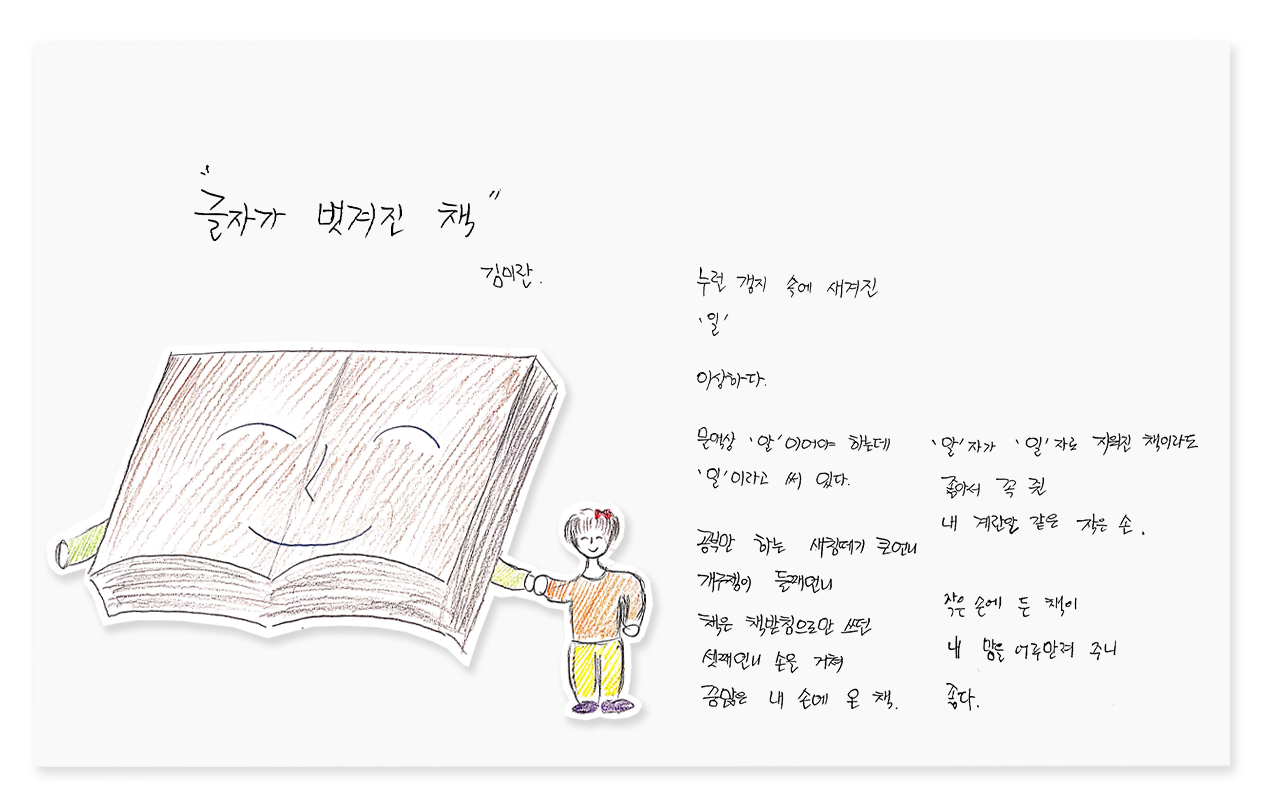 "글자가 벗겨진 책"
김미란.
누런 갱지 속에 새겨진
'일'
이상하다.
문맥상 '알'이어야 하는데
'일'이라고 써 있다.
공부만 하는 새침떼기 큰언니
개구쟁이 둘째언니
책은 책받침으로만 쓰던
셋째언니 손을 거쳐
꿈많은 내 손에 온 책.
'알'자가 '일'자로 지워진 책이라도
좋아서 꼭 쥔
내 계란알 같은 작은 손.
작은 손에 든 책이
내 맘을 어루만져 주니
좋다.